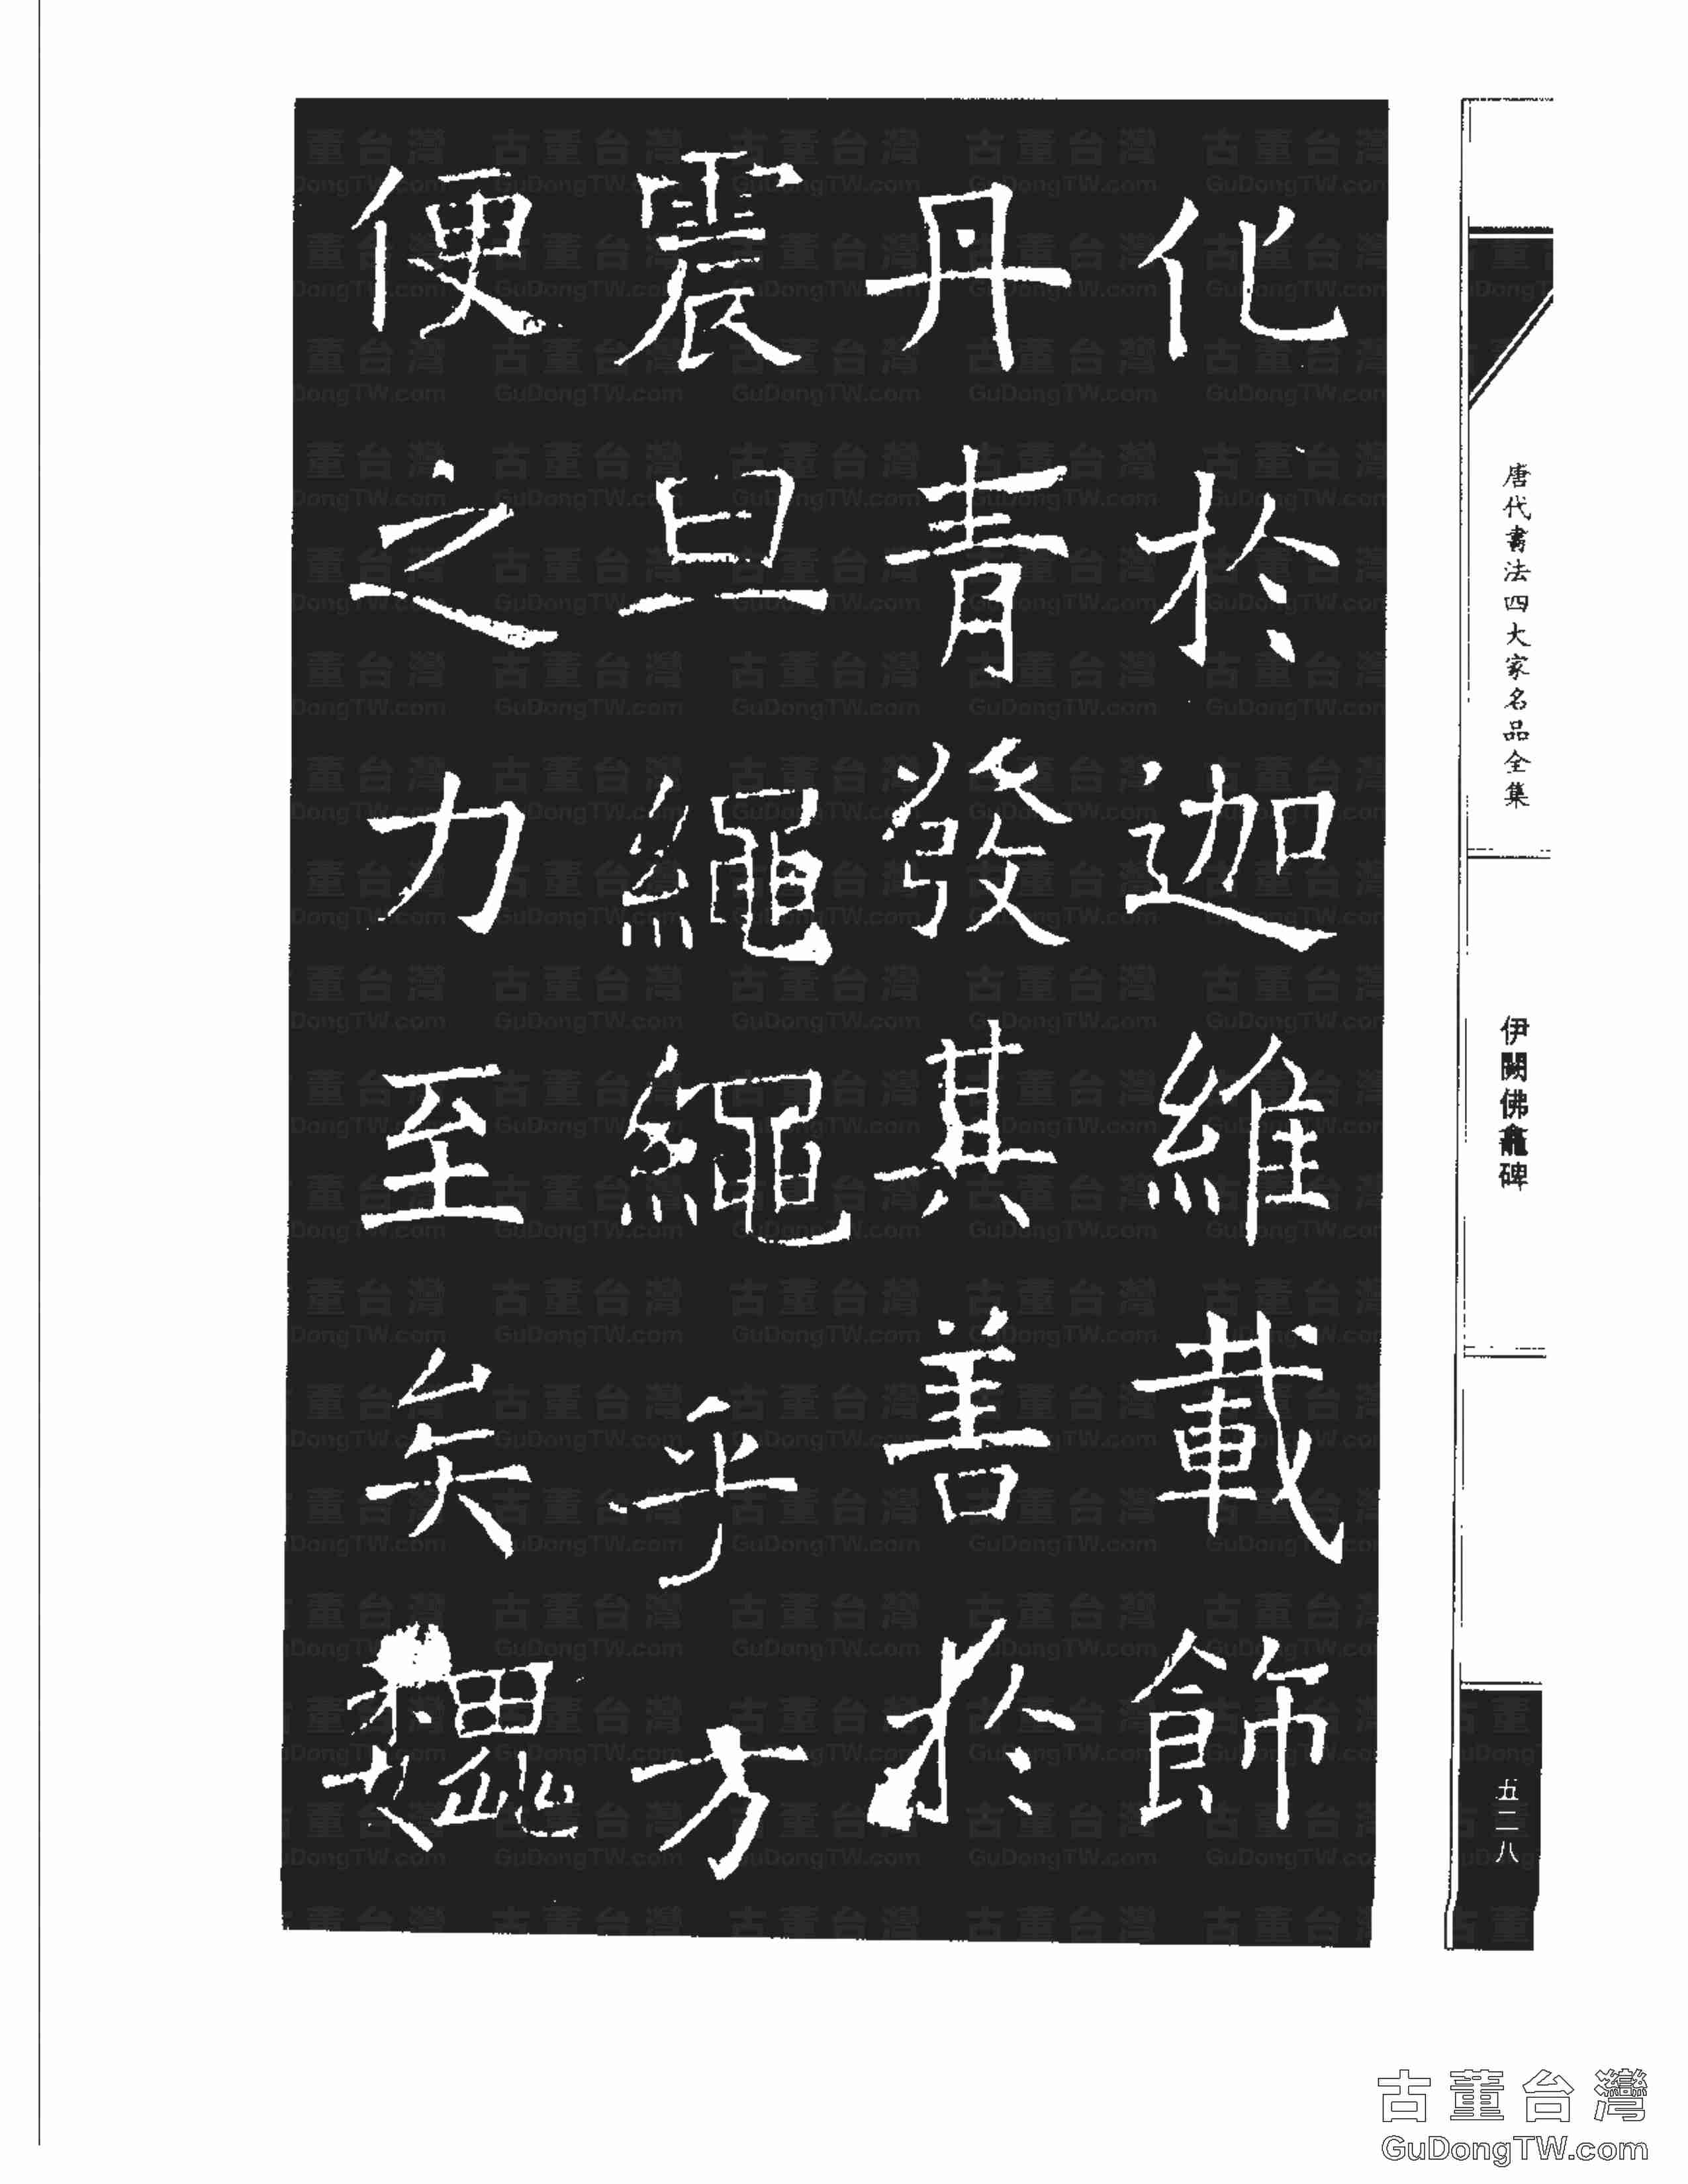 唐代書法四大家名品全集
伊闕佛龕碑
五二八
化於迦維載飾
丹青發其善於
震旦繩繩乎方
便之力至矣巍
古董台灣
GuDongTW.com